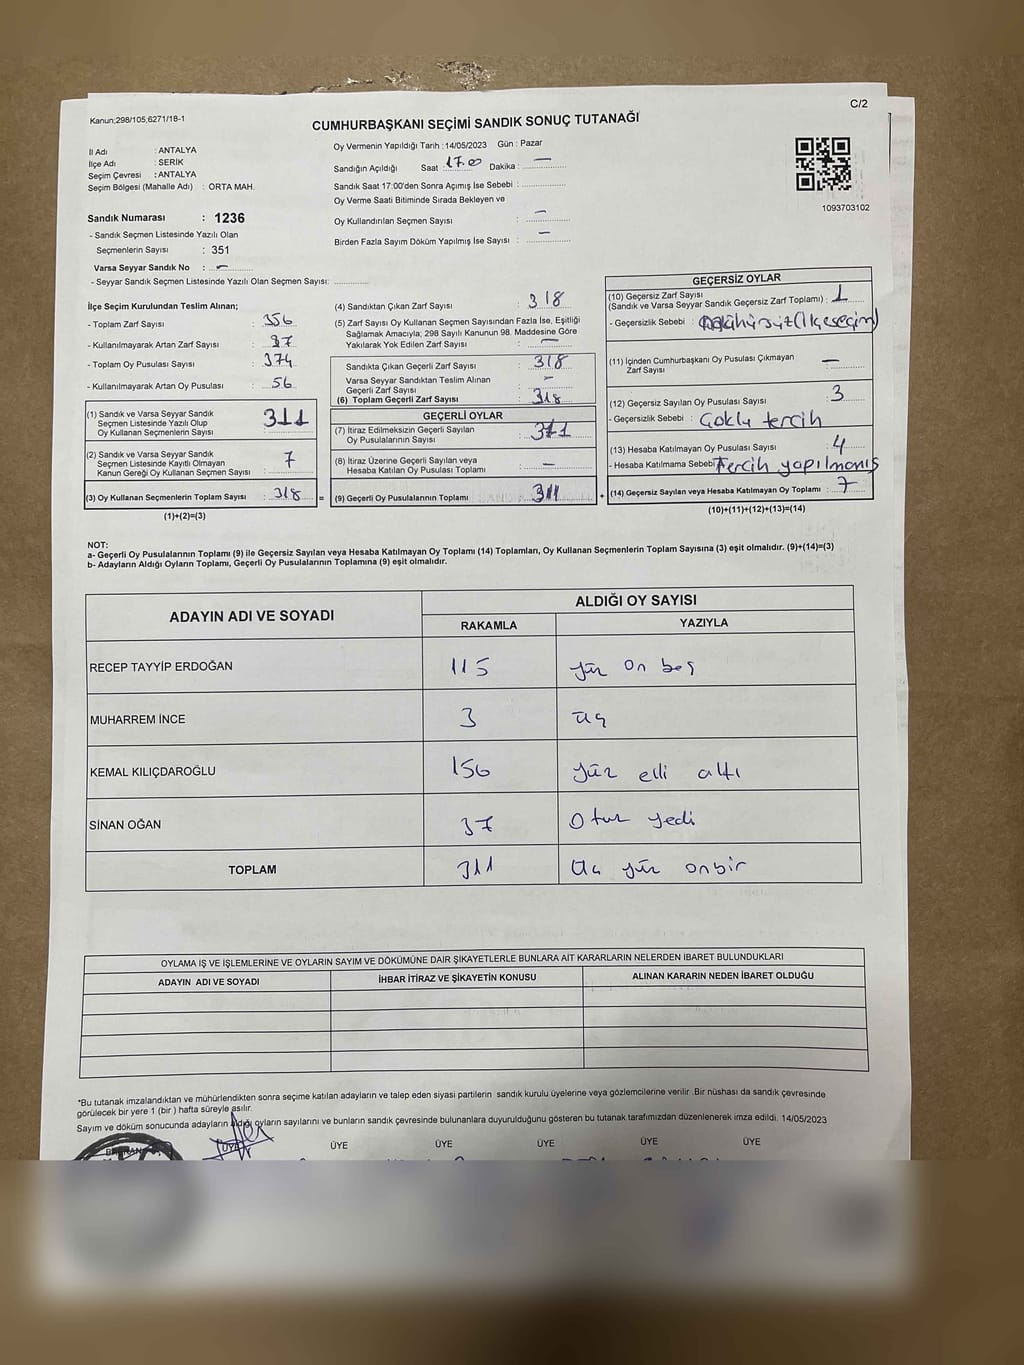 C/2
Kanun;298/105,6271/18-1
CUMHURBAŞKANI SEÇİMİ SANDIK SONUÇ TUTANAĞI
İl Adı : ANTALYA
İlçe Adı : SERİK
Seçim Çevresi : ANTALYA
Seçim Bölgesi (Mahalle Adı) : ORTA MAH.
Sandık Numarası : 1236
- Sandık Seçmen Listesinde Yazılı Olan
Seçmenlerin Sayısı : 351
Varsa Seyyar Sandık No : -
- Seyyar Sandık Seçmen Listesinde Yazılı Olan Seçmen Sayısı:
Oy Vermenin Yapıldığı Tarih : 14/05/2023 Gün : Pazar
Sandığın Açıldığı Saat 17.00 Dakika : -
Sandık Saat 17:00'den Sonra Açımış İse Sebebi :
Oy Verme Saati Bitiminde Sırada Bekleyen ve
Oy Kullandırılan Seçmen Sayısı : -
Birden Fazla Sayım Döküm Yapılmış İse Sayısı : -
1093703102
İlçe Seçim Kurulundan Teslim Alınan;
- Toplam Zarf Sayısı : 356
- Kullanılmayarak Artan Zarf Sayısı : 37
- Toplam Oy Pusulası Sayısı : 374
- Kullanılmayarak Artan Oy Pusulası : 56
(1) Sandık ve Varsa Seyyar Sandık
Seçmen Listesinde Yazılı Olup
Oy Kullanan Seçmenlerin Sayısı : 311
(2) Sandık ve Varsa Seyyar Sandık
Seçmen Listesinde Kayıtlı Olmayan
Kanun Gereği Oy Kullanan Seçmen Sayısı : 7
(3) Oy Kullanan Seçmenlerin Toplam Sayısı : 318 =
(1)+(2)=(3)
(4) Sandıktan Çıkan Zarf Sayısı : 318
(5) Zarf Sayısı Oy Kullanan Seçmen Sayısından Fazla İse, Eşitliği
Sağlamak Amacıyla; 298 Sayılı Kanunun 98. Maddesine Göre
Yakılarak Yok Edilen Zarf Sayısı : -
Sandıkta Çıkan Geçerli Zarf Sayısı : 318
Varsa Seyyar Sandıktan Teslim Alınan
Geçerli Zarf Sayısı : -
(6) Toplam Geçerli Zarf Sayısı : 318
GEÇERLİ OYLAR
(7) İtiraz Edilmeksizin Geçerli Sayılan
Oy Pusulalarının Sayısı : 311
(8) İtiraz Üzerine Geçerli Sayılan veya
Hesaba Katılan Oy Pusulası Toplamı : -
(9) Geçerli Oy Pusulalarının Toplamı : 311 +
GEÇERSİZ OYLAR
(10) Geçersiz Zarf Sayısı
(Sandık ve Varsa Seyyar Sandık Geçersiz Zarf Toplamı) : 1
- Geçersizlik Sebebi : (İlçe seçim)
(11) İçinden Cumhurbaşkanı Oy Pusulası Çıkmayan
Zarf Sayısı : -
(12) Geçersiz Sayılan Oy Pusulası Sayısı : 3
- Geçersizlik Sebebi : Çoklu tercih
(13) Hesaba Katılmayan Oy Pusulası Sayısı : 4
- Hesaba Katılmama Sebebi : Tercih yapılmamış
(14) Geçersiz Sayılan veya Hesaba Katılmayan Oy Toplamı : 7
(10)+(11)+(12)+(13)=(14)
NOT:
a- Geçerli Oy Pusulalarının Toplamı (9) ile Geçersiz Sayılan veya Hesaba Katılmayan Oy Toplamı (14) Toplamları, Oy Kullanan Seçmenlerin Toplam Sayısına (3) eşit olmalıdır. (9)+(14)=(3)
b- Adayların Aldığı Oyların Toplamı, Geçerli Oy Pusulalarının Toplamına (9) eşit olmalıdır.
ADAYIN ADI VE SOYADI ALDIĞI OY SAYISI
RAKAMLA YAZIYLA
RECEP TAYYİP ERDOĞAN 115 yüz on beş
MUHARREM İNCE 3 üç
KEMAL KILIÇDAROĞLU 156 yüz elli altı
SİNAN OĞAN 37 Otuz yedi
TOPLAM 311 Üç yüz onbir
OYLAMA İŞ VE İŞLEMLERİNE VE OYLARIN SAYIM VE DÖKÜMÜNE DAİR ŞİKAYETLERLE BUNLARA AİT KARARLARIN NELERDEN İBARET BULUNDUKLARI
ADAYIN ADI VE SOYADI İHBAR İTİRAZ VE ŞİKAYETİN KONUSU ALINAN KARARIN NEDEN İBARET OLDUĞU
*Bu tutanak imzalandıktan ve mühürlendikten sonra seçime katılan adayların ve talep eden siyasi partilerin sandık kurulu üyelerine veya gözlemcilerine verilir .Bir nüshası da sandık çevresinde
görülecek bir yere 1 (bir ) hafta süreyle asılır.
Sayım ve döküm sonucunda adayların aldığı oyların sayılarını ve bunların sandık çevresinde bulunanlara duyurulduğunu gösteren bu tutanak tarafımızdan düzenlenerek imza edildi. 14/05/2023
BAŞKAN ÜYE ÜYE ÜYE ÜYE ÜYE ÜYE